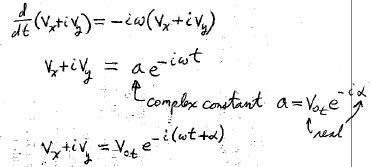 d/dt (Vx+iVy) = -iω(Vx+iVy)
Vx+iVy = a e^-iωt
complex constant a = V₀t e^-iα
real
Vx+iVy = V₀t e^-i(ωt+α)